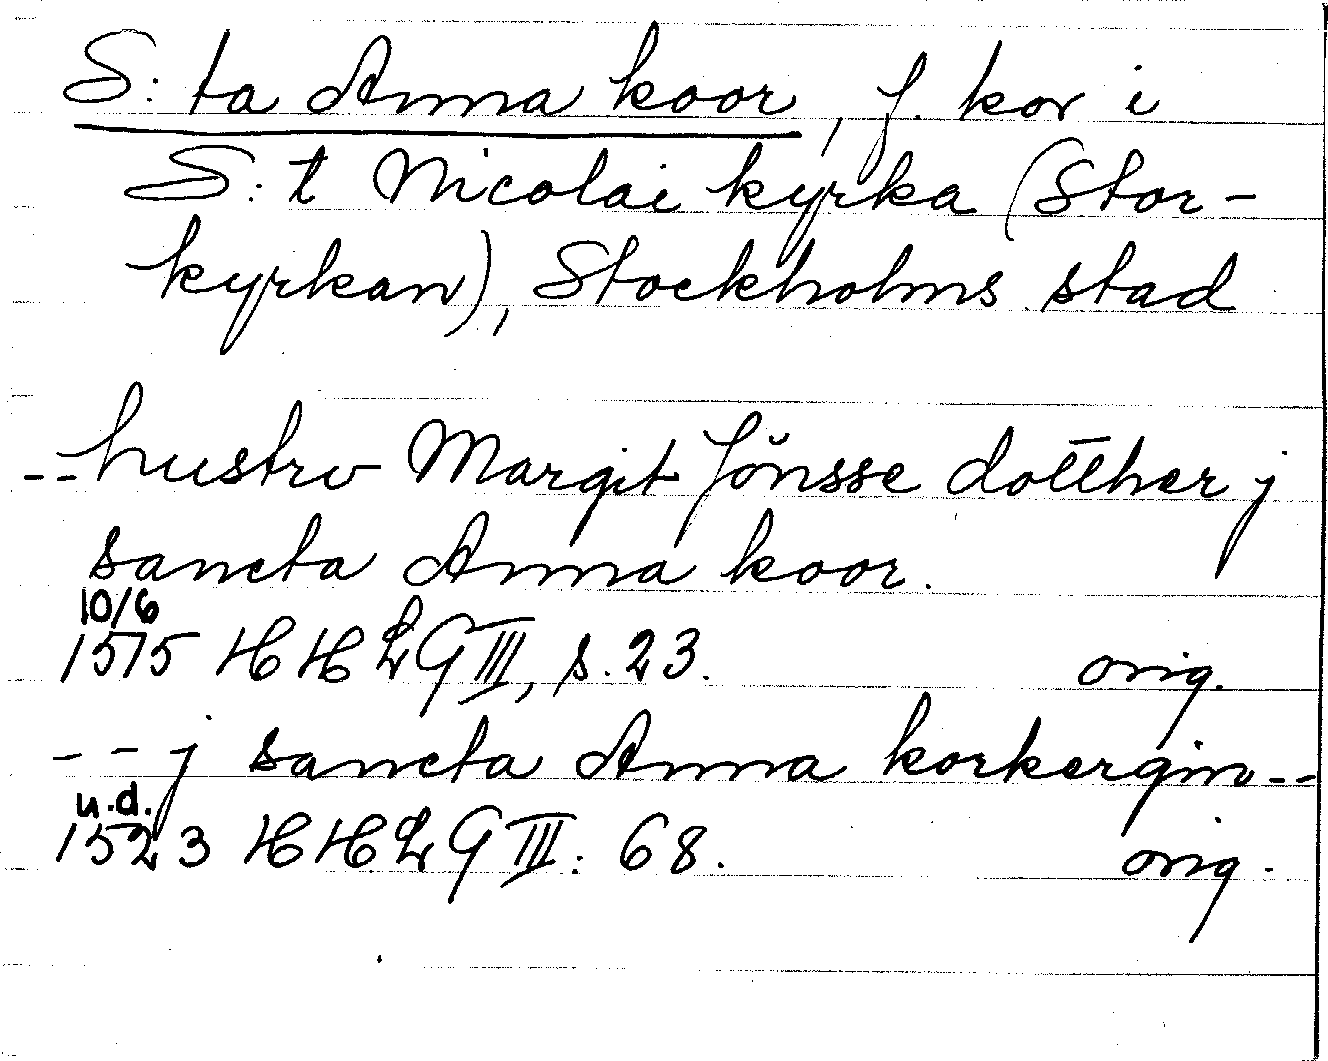 S:ta Anna koor, f. kor i
S:t Nicolai kyrka (Stor-
kyrkan), Stockholms stad
-- hustrv Margit Jönsse dotther j
sancta Anna koor.
10/6
1515 HHLG III, s. 23. orig.
-- j sancta Anna korkergin --
u.d.
1523 HHLG III: 68. orig.